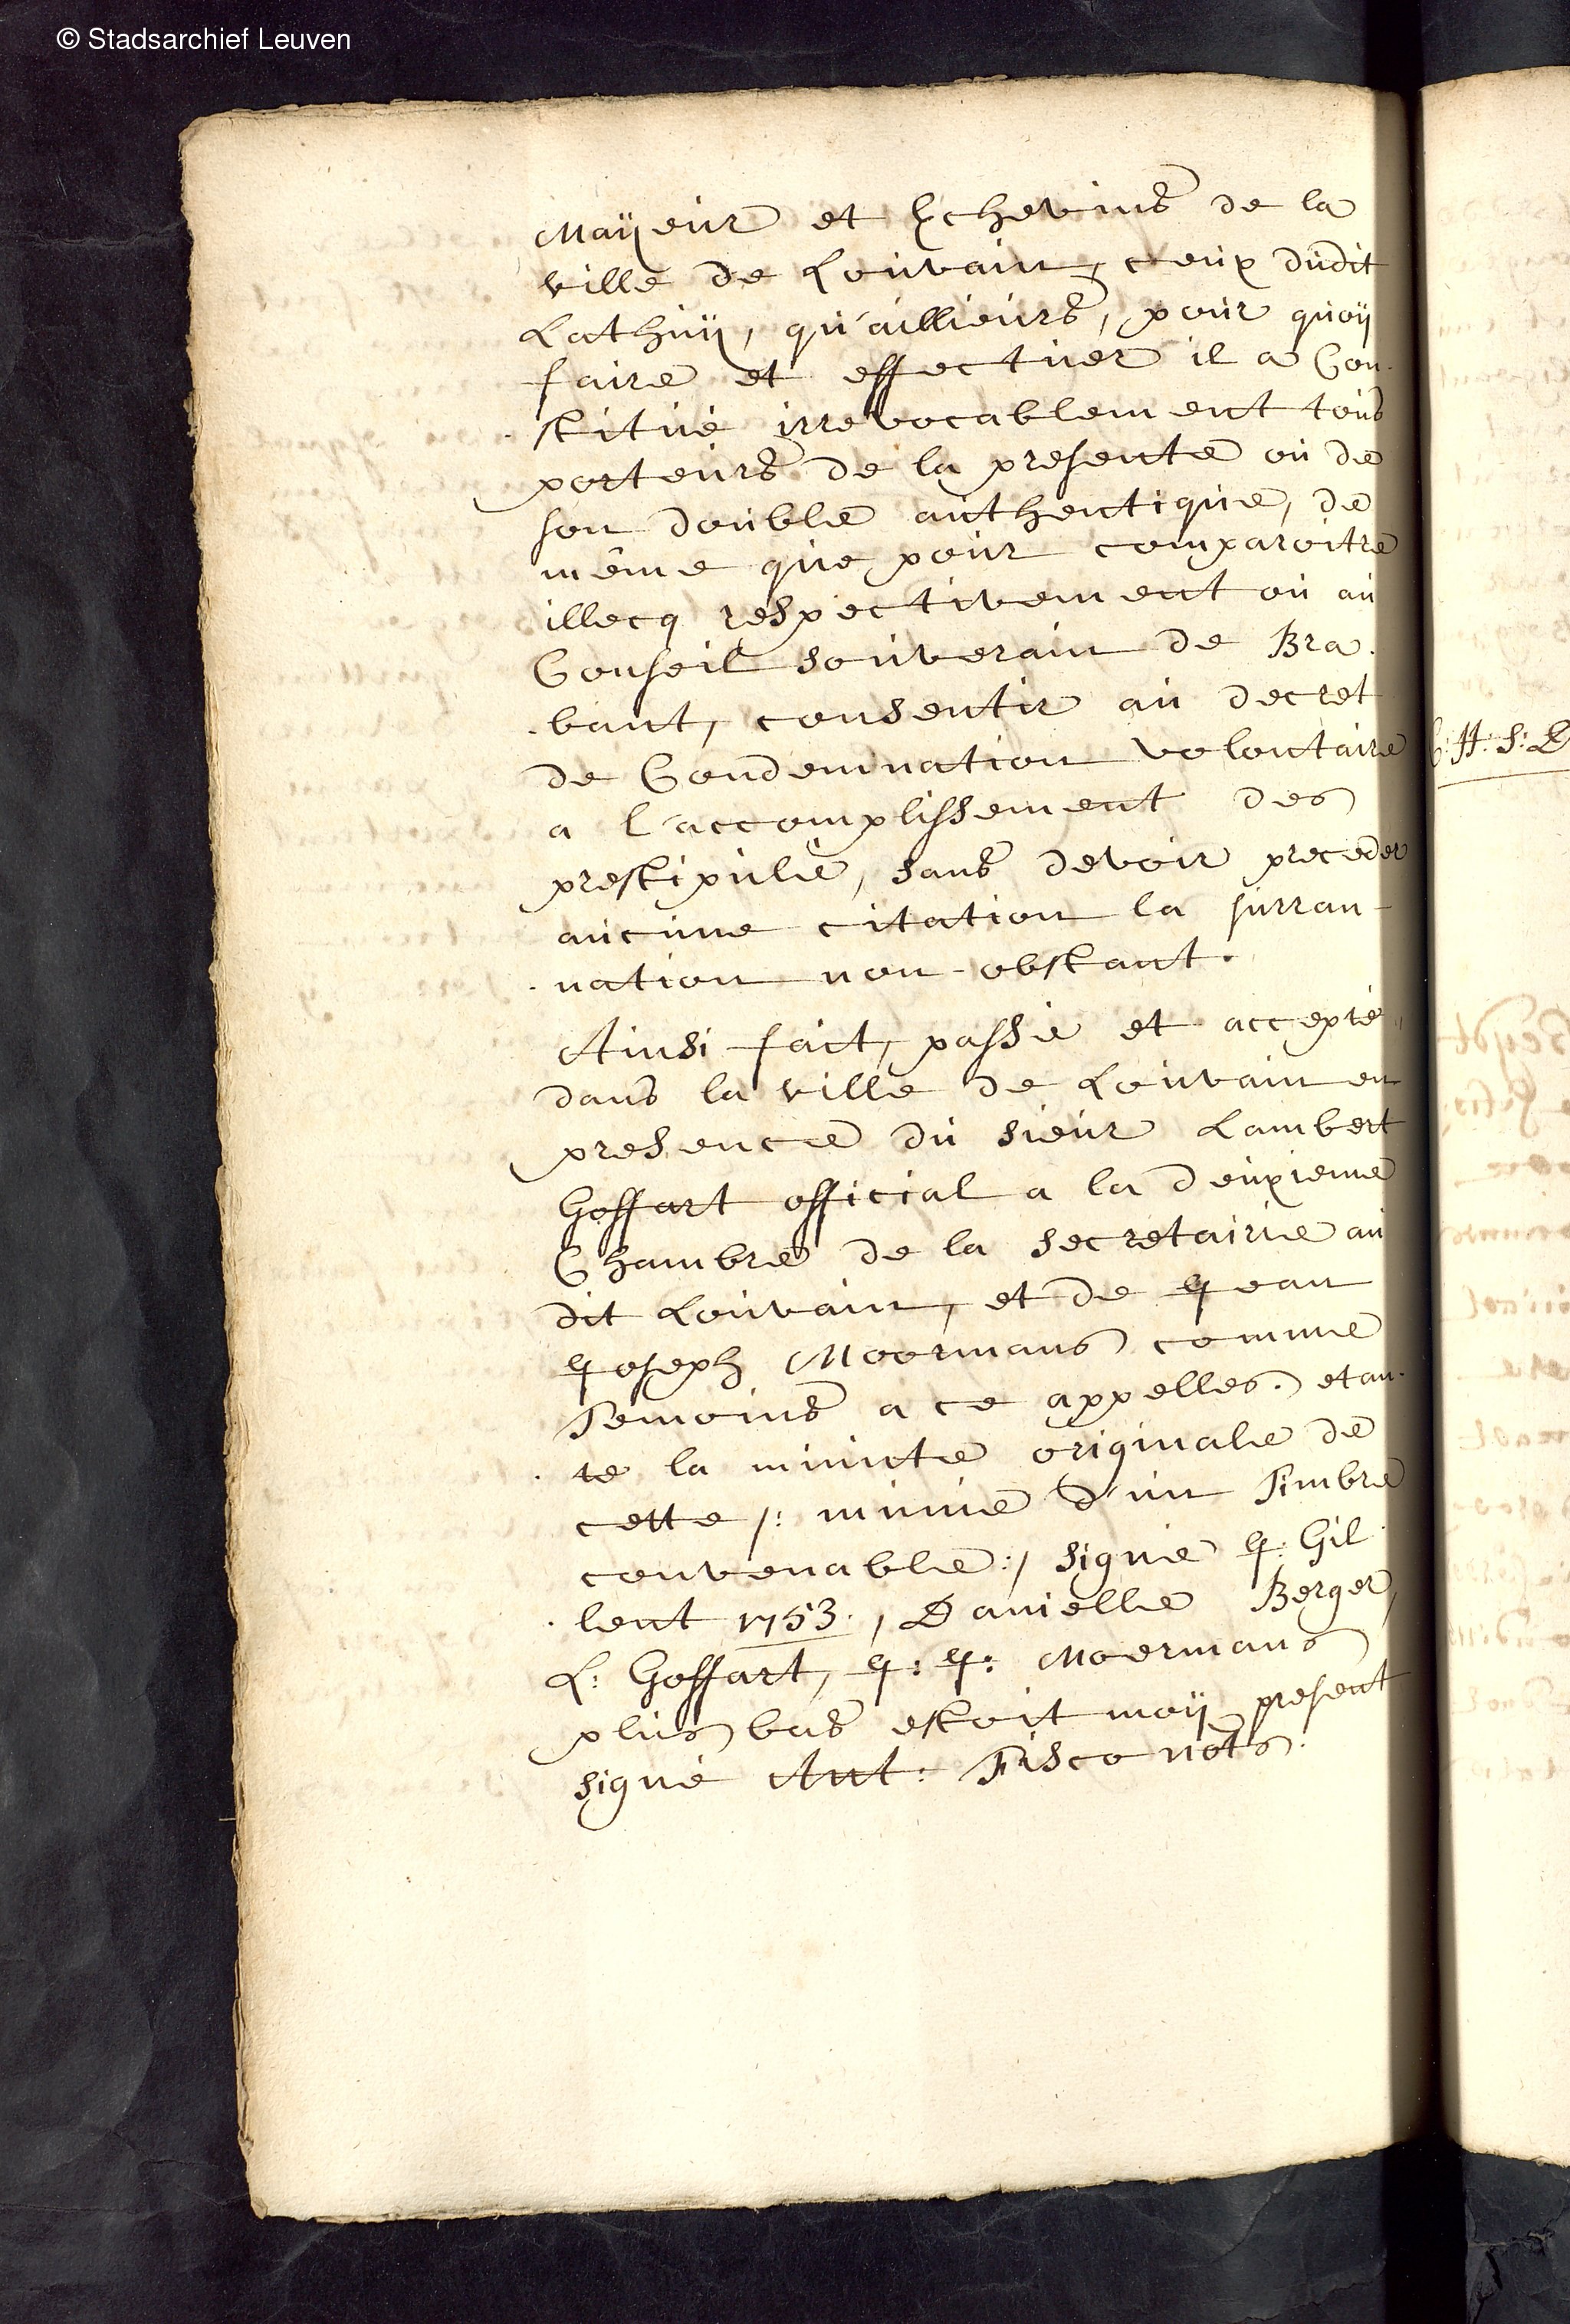 © Stadsarchief Leuven
Maÿeur et Echevins de la
ville de Louvain, ceux dudit
Lathuÿ, qu'aillieurs, pour quoÿ
faire et effectuer il a Con-
stitué irrevocablement tous
porteurs de la presente ou de
son double authentique, de
même que pour comparoitre
illecq respectivement ou au
Conseil souverain de Bra-
bant, consentir au decret
de Condemnation volontaire
a l'accomplissement des
prestipulé, sans devoir preceder
aucune citation la surran-
nation non-obstant.
Ainsi fait, passé et accepté,
dans la ville de Louvain en
presence du sieur Lambert
Goffart official a la deuxieme
Chambre de la secretairie au
dit Louvain, et de Jean
Joseph Moormans comme
Temoins a ce appelles. etan-
te la minute originale de
cette /: munie d'un Timbre
convenable :/ signé J: Gil-
lent 1753., Danielle Berger,
L: Goffart, J: J: Moermans
plus bas estoit moÿ present
signé Ant: Fisco nots.
C: H: S: L